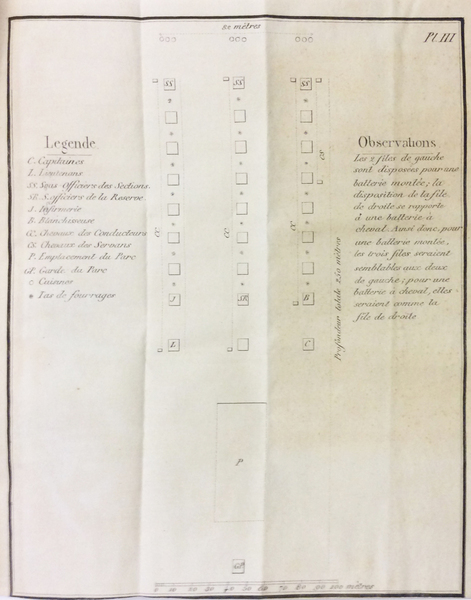 82 mètres
Pl. III
SS SS SS
Legende
C. Capitaines
L. Lieutenans
SS. Sous Officiers des Sections
SR. S. officiers de la Reserve
J. Infirmerie
B. Blanchisseuse
CC. Chevaux des Conducteurs
CS. Chevaux des Servans
P. Emplacement du Parc
GP. Garde du Parc
o Cuisines
* Tas de fourrages
Observations
Les 2 files de gauche
sont disposées pour une
batterie montée; la
disposition de la file
de droite se rapporte
à une batterie à
cheval. Ainsi donc, pour
une batterie montée,
les trois files seraient
semblables aux deux
de gauche; pour une
batterie à cheval, elles
seraient comme la
file de droite
CS
CC CC CC
J SR B
L C
Profondeur totale 250 mètres
P
GP
100 mètres